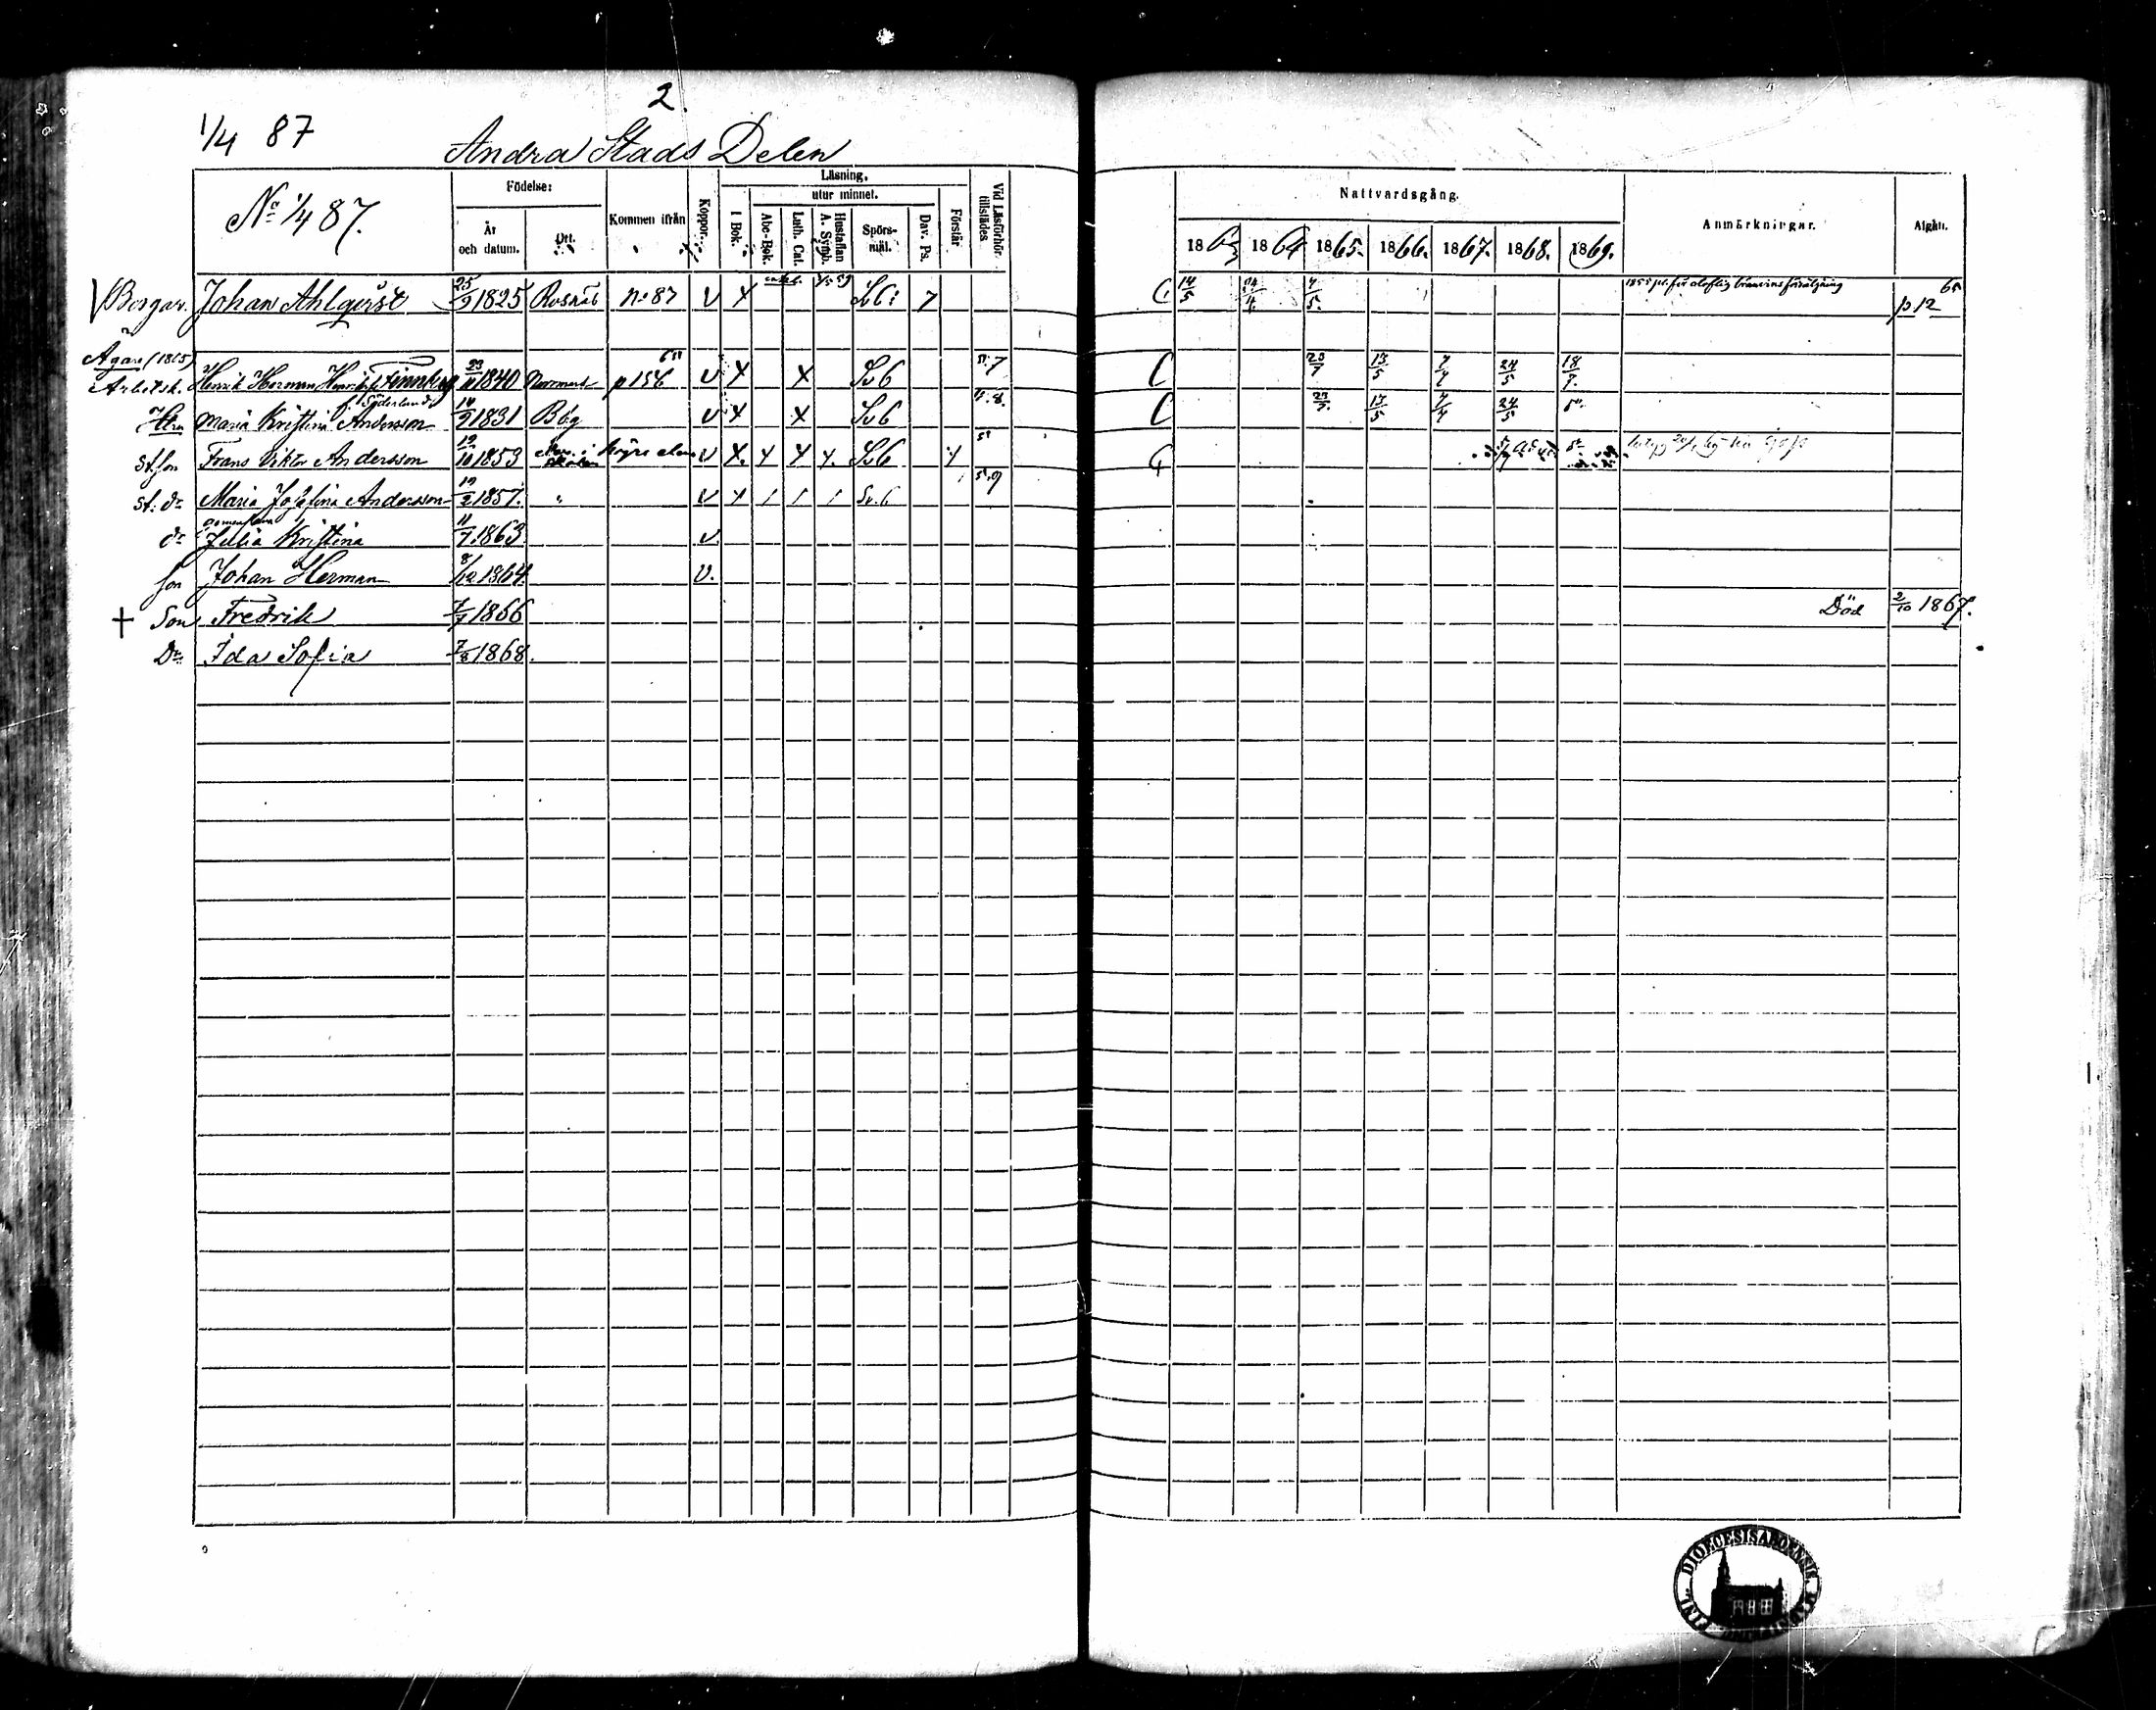 2.
1/4 87
Andra Stads Delen
No 1/4 87.
Födelse:
År och datum.
Ort.
Kommen ifrån
Koppor.
Läsning,
I Bok.
utur minnet.
Abc-Bok.
Luth. Cat.
Hustaflan A. Symb.
Spörs-mål.
Dav. Ps.
Förstår
Vid Läsförhör tillstädes
Nattvardsgång.
1863 1864 1865. 1866. 1867. 1868. 1869.
Anmärkningar.
Afgått.
Borgar. Johan Ahlqvist 25/9 1825 No 87 v x 7 C 14/5 24/4 7/5. 1855 för oloflig bränvins försäljning 65 p 12
Ägare (1865)
Arbetsk. Henrik Herman 23/11 1840 p 156 v x x Sv 6 7 C 23/7 13/5 7/4 24/5 18/7.
f. Söderlund
Maria Kristina Andersson 1831 Bbg v x x Sv 6 8. C 23/7. 13/5 7/4 24/5
St. son Frans Viktor Andersson 19/10 1853 v x. x x x. Sv 6
St. dr Maria Josefina Andersson 19/2 1857. " v Sv. 6 9
dr Julia Kristina 11/7 1863 v
son Johan Herman 8/12 1864. v.
+ Son Fredrik 7/7 1866 Död 2/10 1867.
Dr Ida Sofia 7/8 1868.
FINL. DIOECESIS ABOENSIS